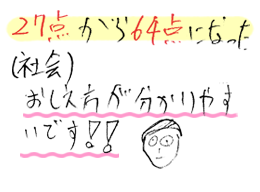 27点から64点になった
(社会)
おしえ方が分かりやす
いです!!